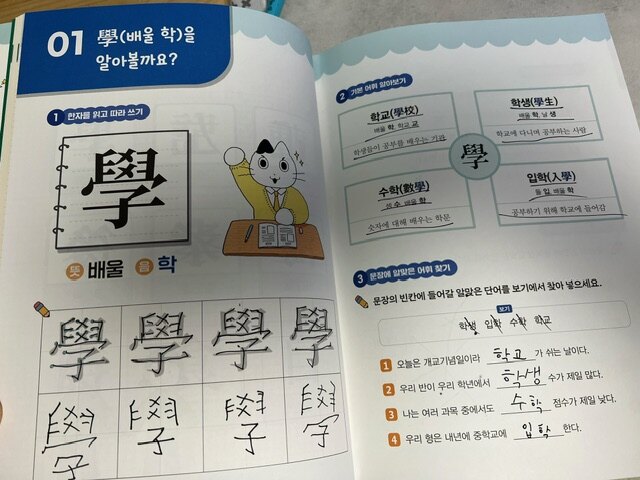 01 學(배울 학)을
알아볼까요?
1 한자를 읽고 따라 쓰기
學
뜻 배울 음 학
學 學 學 學
學 學 學 學
2 기본 어휘 알아보기
학교(學校)
배울 학, 학교 교
학생들이 공부를 배우는 기관
학생(學生)
배울 학, 날 생
학교에 다니며 공부하는 사람
學
수학(數學)
셈 수, 배울 학
숫자에 대해 배우는 학문
입학(入學)
들 입, 배울 학
공부하기 위해 학교에 들어감
3 문장에 알맞은 어휘 찾기
문장의 빈칸에 들어갈 알맞은 단어를 보기에서 찾아 넣으세요.
보기
학생 입학 수학 학교
1 오늘은 개교기념일이라 학교 가 쉬는 날이다.
2 우리 반이 우리 학년에서 학생 수가 제일 많다.
3 나는 여러 과목 중에서도 수학 점수가 제일 낮다.
4 우리 형은 내년에 중학교에 입학 한다.